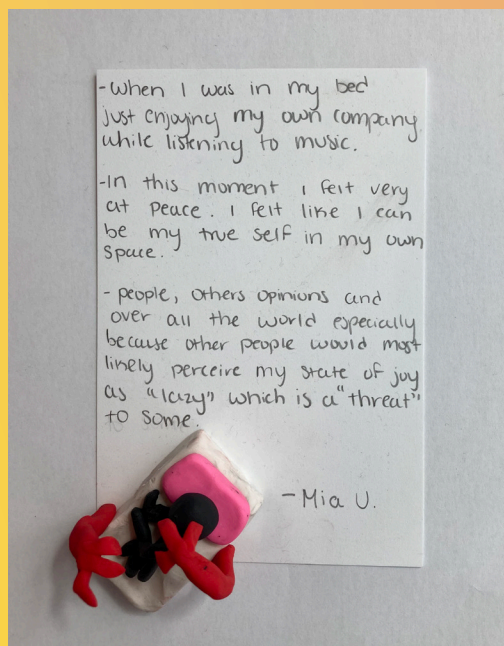 -When I was in my bed
just enjoying my own company
while listening to music.
-In this moment I felt very
at peace. I felt like I can
be my true self in my own
space.
- people, others opinions and
over all the world especially
because other people would most
likely perceive my state of joy
as "lazy" which is a "threat"
to some.
-Mia U.